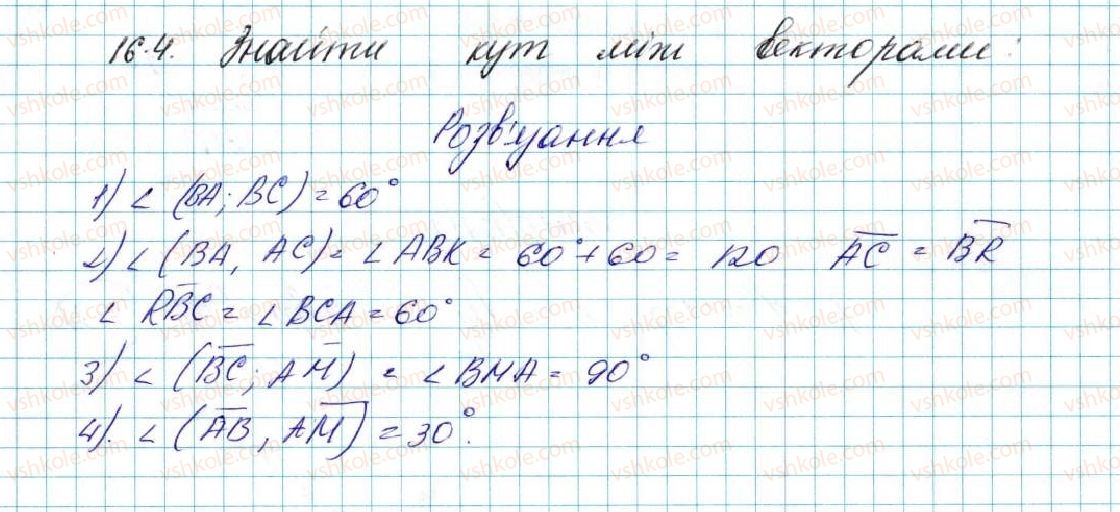 16.4. Знайти кут між векторами:
Розв'язання
1) ∠ (BA; BC) = 60°
2) ∠ (BA, AC) = ∠ ABK = 60° + 60 = 120 AC = BK
∠ KBC = ∠ BCA = 60°
3) ∠ (BC; AM) = ∠ BMA = 90°
4). ∠ (AB, AM) = 30°.
vshkole.com